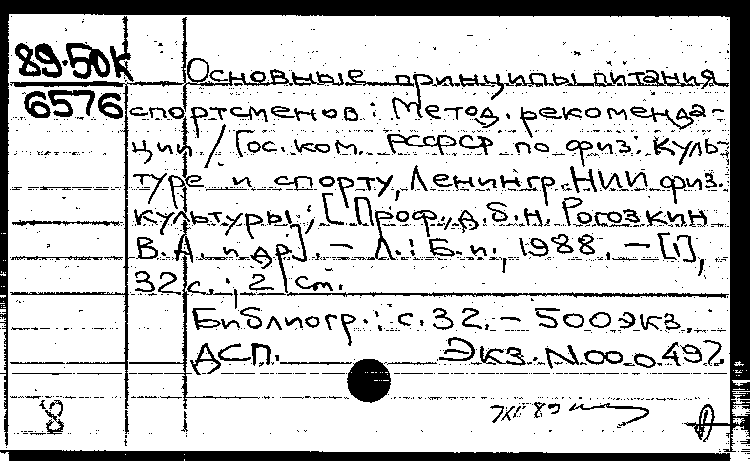 89-50К
6576
Основные принципы питания
спортсменов: Метод. рекоменда-
ции / Гос. ком. РСФСР по физ. куль-
туре и спорту, Ленингр. НИИ физ.
культуры; [Проф., д.б.н. Рогозкин
В.А. и др]. - Л.: Б.и., 1988. - [1],
32 с.; 21 см.
Библиогр.: с. 32. - 500 экз.
ДСП. Экз. N 00-0497.
8